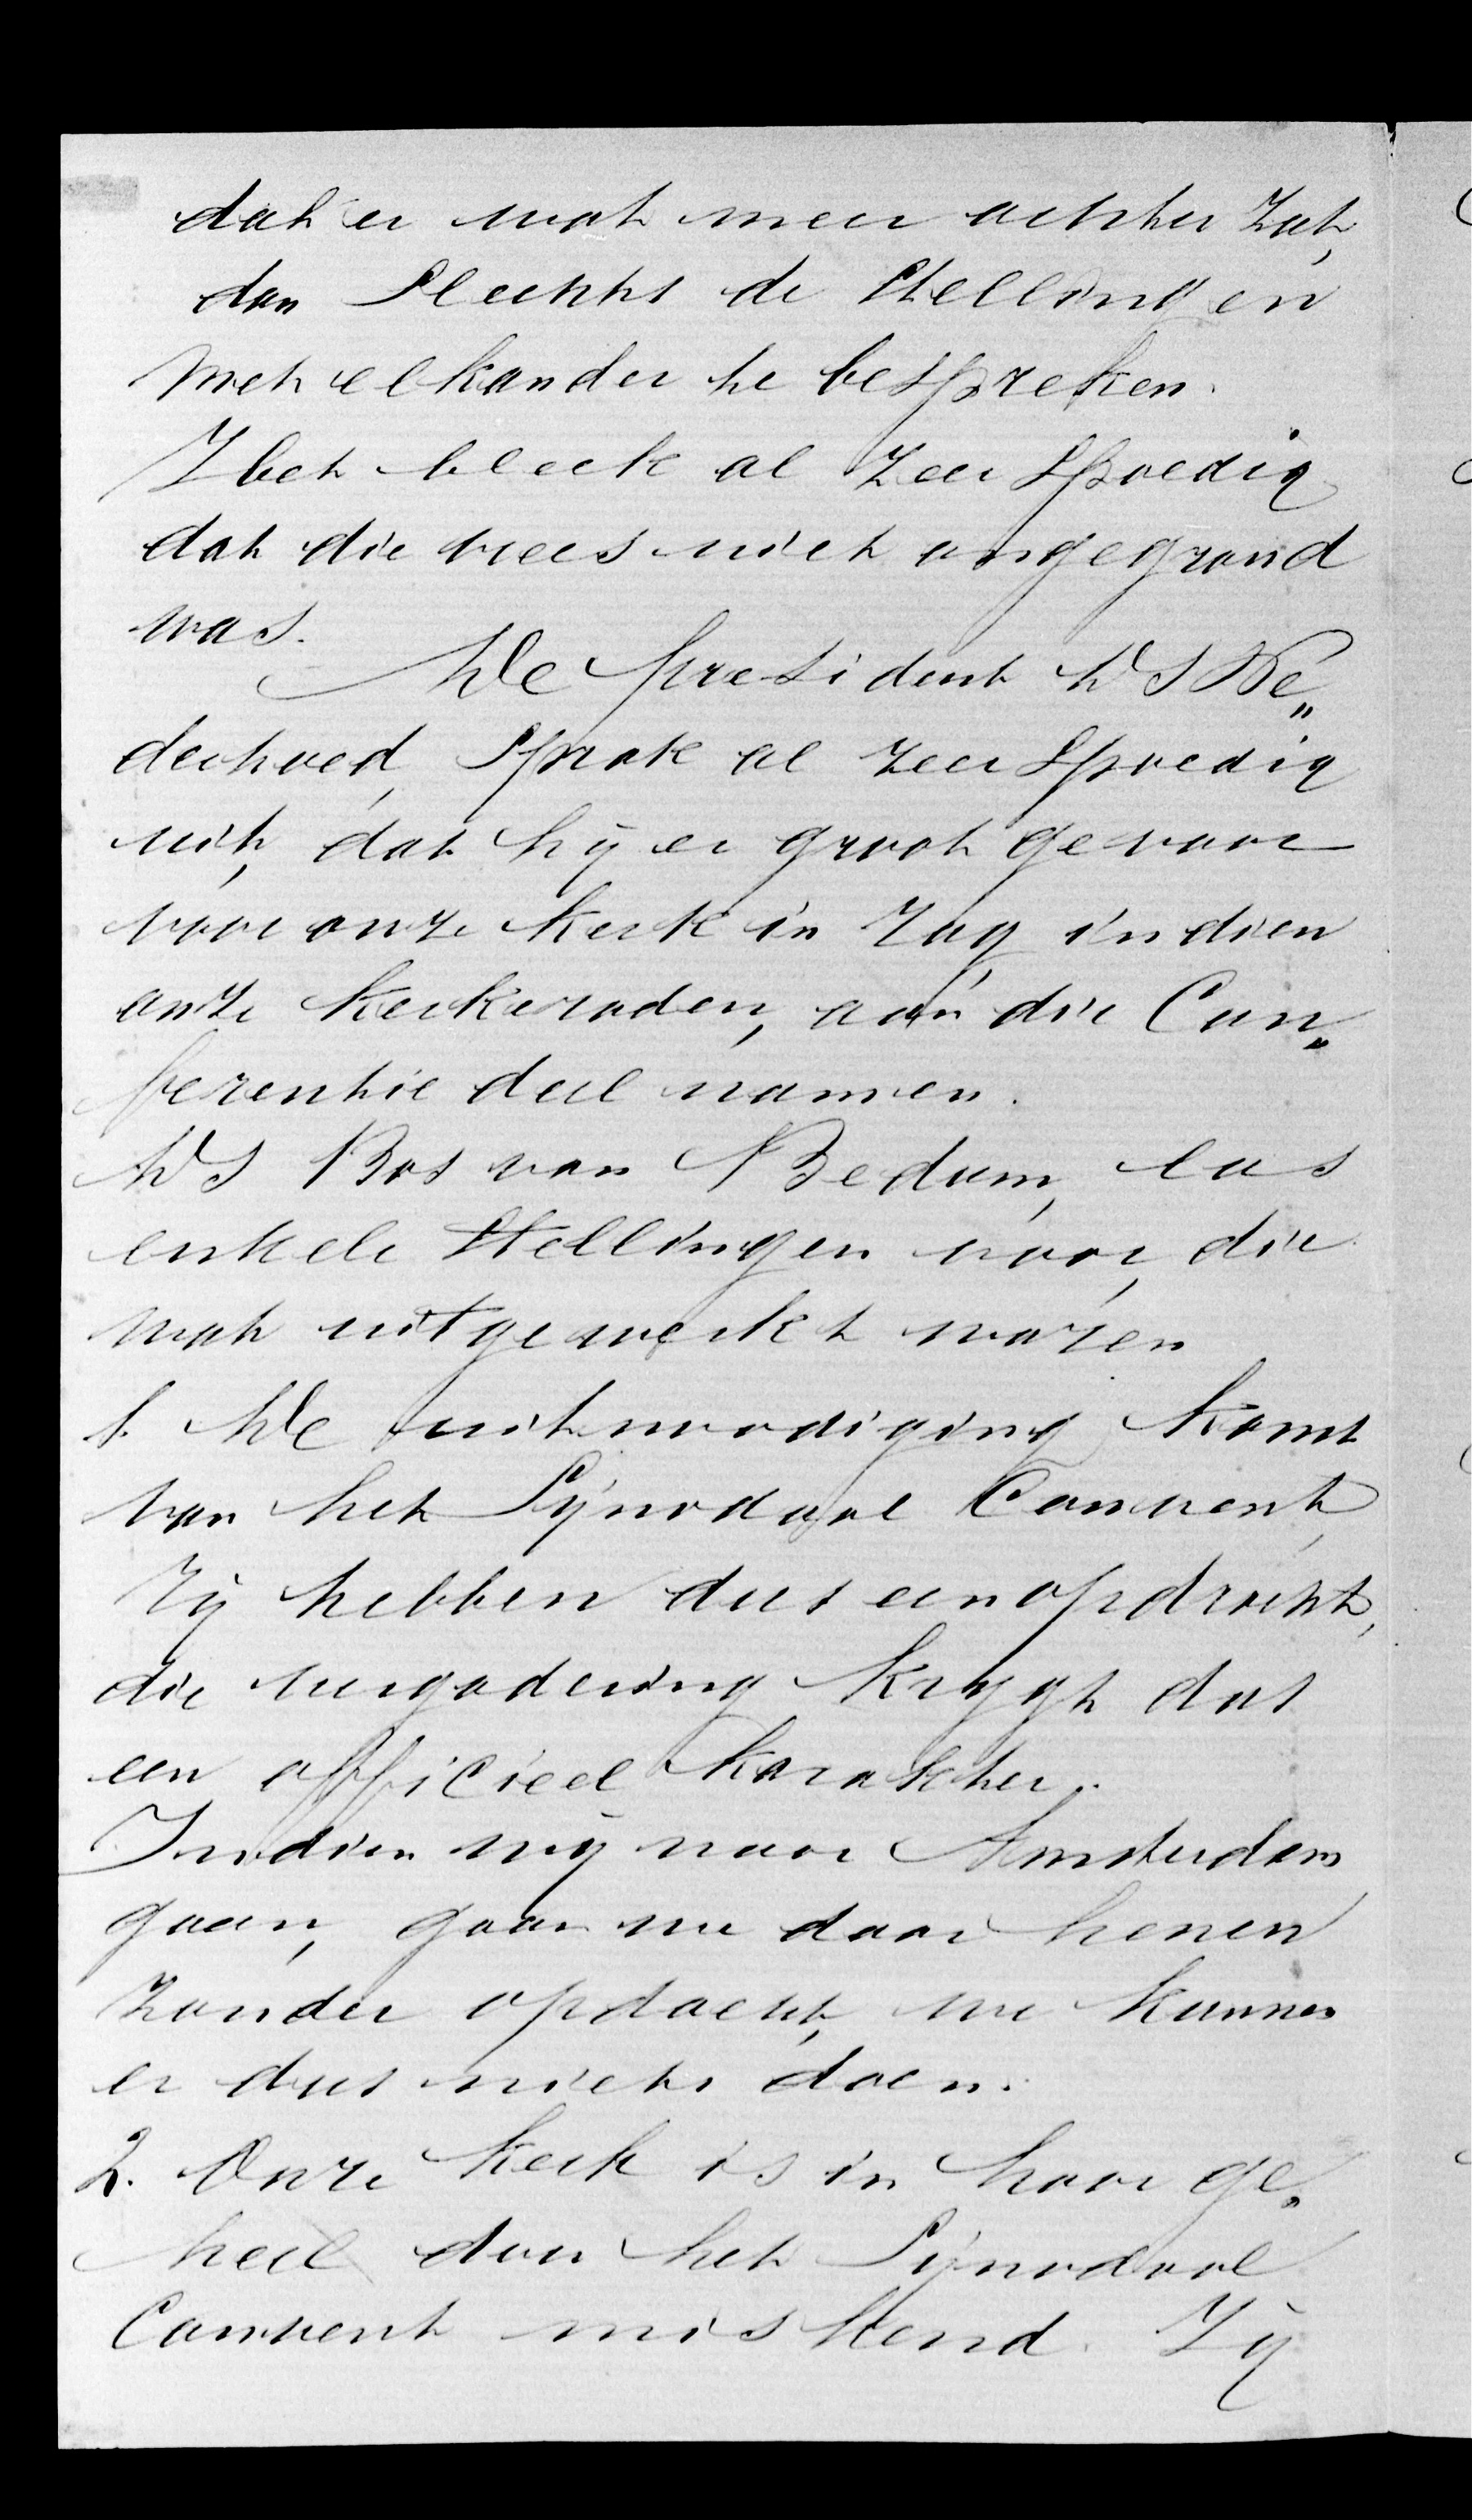 dat er wat meer achter zat,
dan Slechts de Stellingen
met elkander te bespreken.
Het bleek al zeer Spoedig
dat die vrees niet ongegrond
was.
De President Ds Ne„
derhoed, Sprak al zeer Spoedig
uit, dat hij er groot gevaar
voor onze Kerk in zag, indien
onze Kerkeraden, aan die Con„
ferentie deel namen.
Ds Bos van Bedum, las
enkele Stellingen voor, die
wat uitgewerkt waren
1. De uitnoodiging komt
van het Synodaal Convent,
Zij hebben dus een opdracht,
die vergadering krygt dus
een officieel Karakter.
Indien wij naar Amsterdam
gaan, gaan we daar henen
zonder opdacht, we kunnen
er dus niets doen.
2. Onze Kerk is in haar ge„
heel door het Synodaal
Convent miskend. Zij